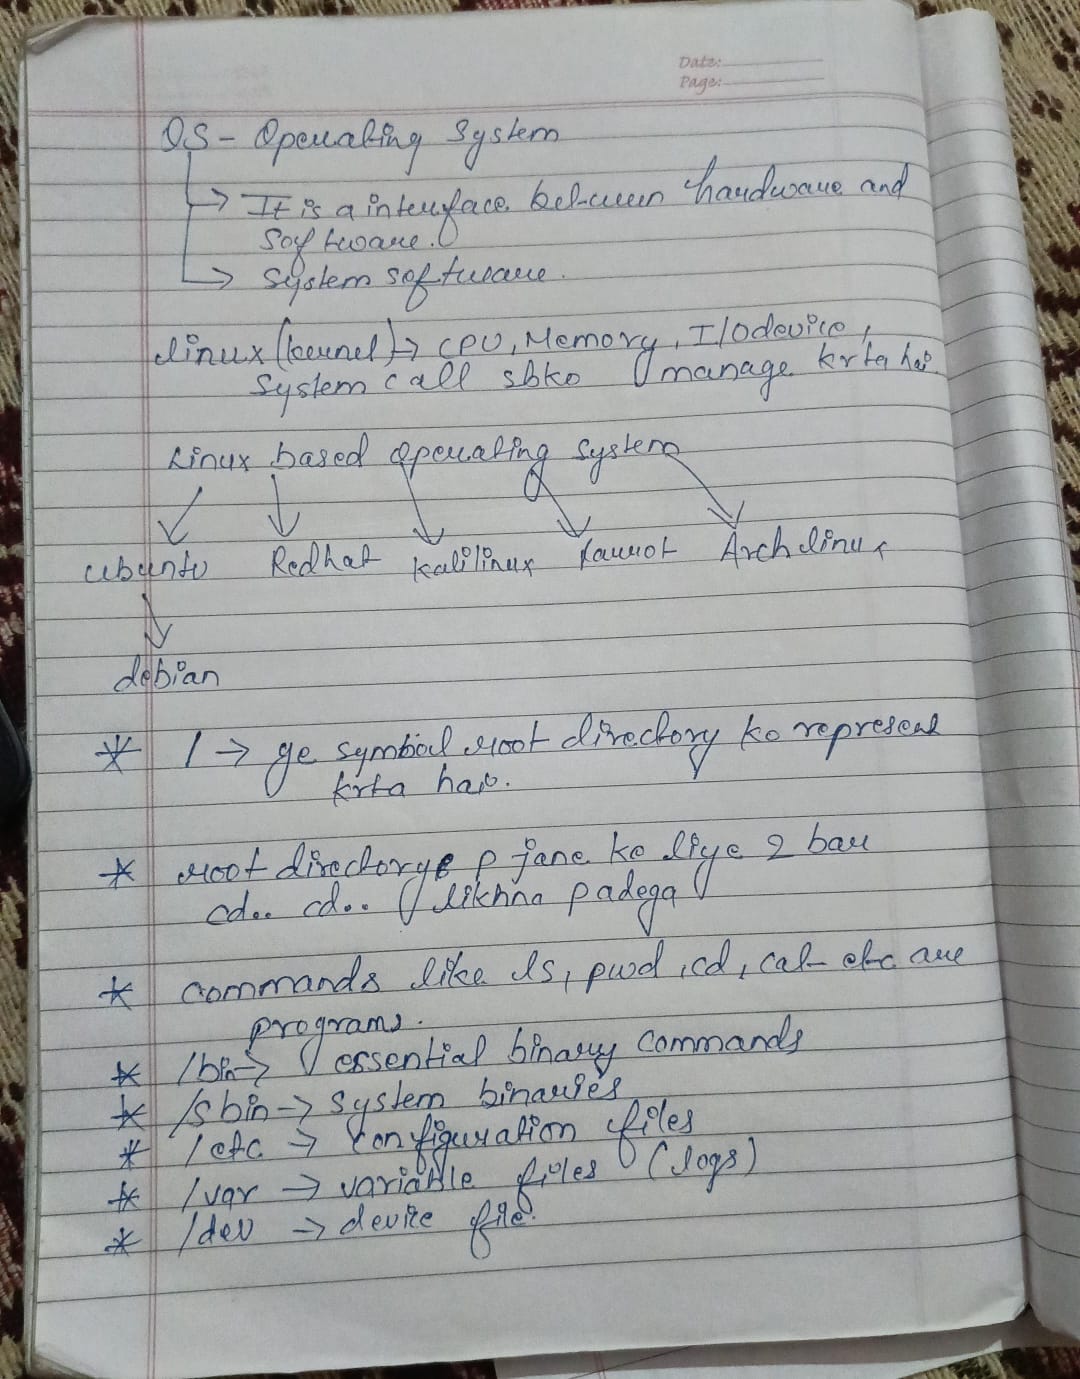 Date:
Page:
OS - Operating System
→ It is a interface between hardware and
software.
→ System software.
linux (kernel) → CPU, Memory, I/O device,
System call sbko manage krta hai.
Linux based operating system
ubuntu Redhat kalilinux Parrot Arch linux
debian
* / → ye symbol root directory ko represent
krta hai.
* root directory p jane ke liye 2 bar
cd.. cd.. likhna padega
* commands like ls, pwd, cd, cat etc are
programs.
* /bin → essential binary commands
* /sbin → system binaries
* /etc → configuration files
* /var → variable files (logs)
* /dev → device file.